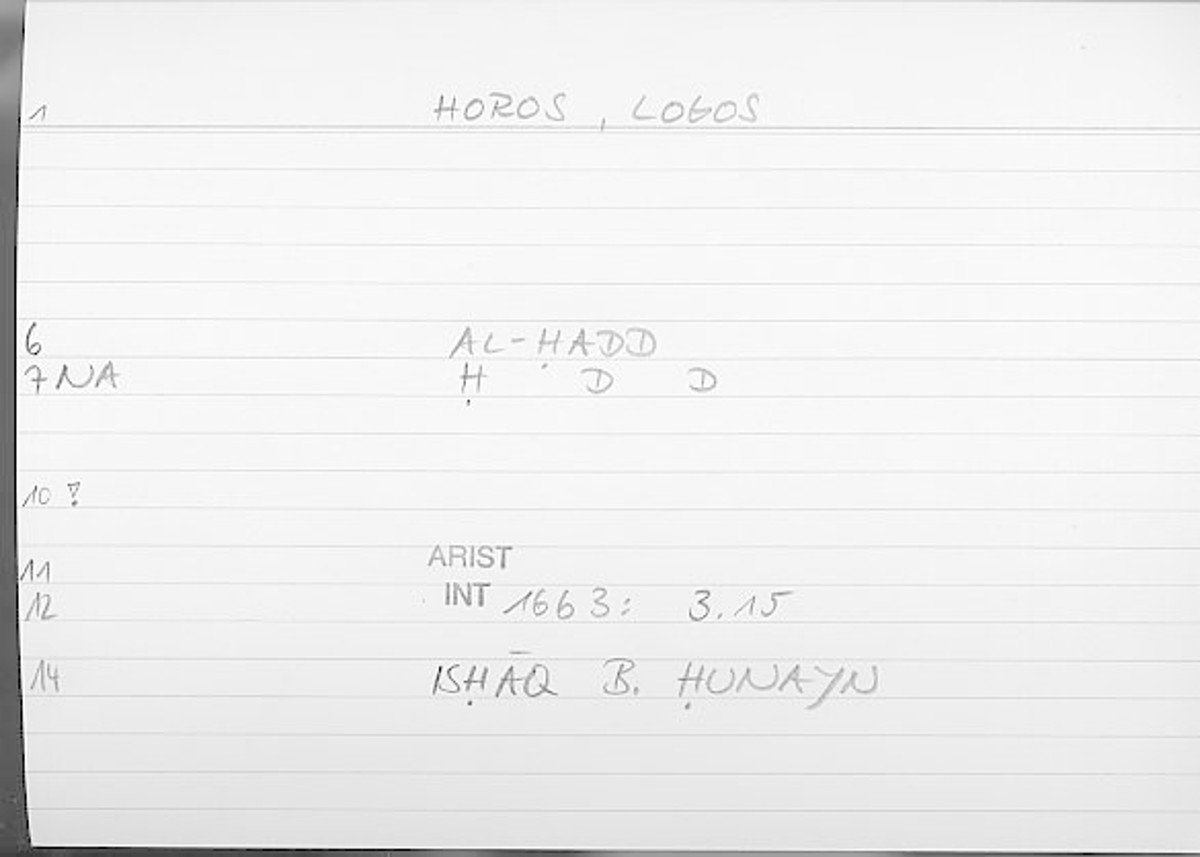 1 HOROS , LOGOS
6 AL-ḤADD
7 NA Ḥ D D
10 ?
11 ARIST
12 INT 1663: 3.15
14 ISḤĀQ B. ḤUNAYN